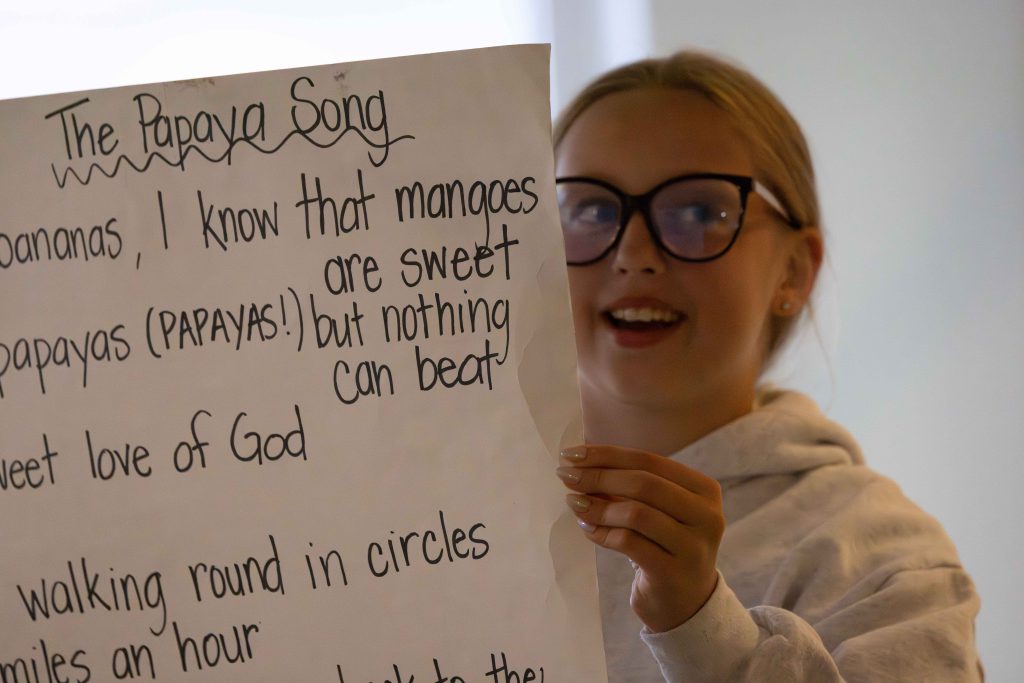 The Papaya Song
bananas, I know that mangoes
are sweet
papayas (PAPAYAS!) but nothing
can beat
love of God
walking round in circles
miles an hour
to the